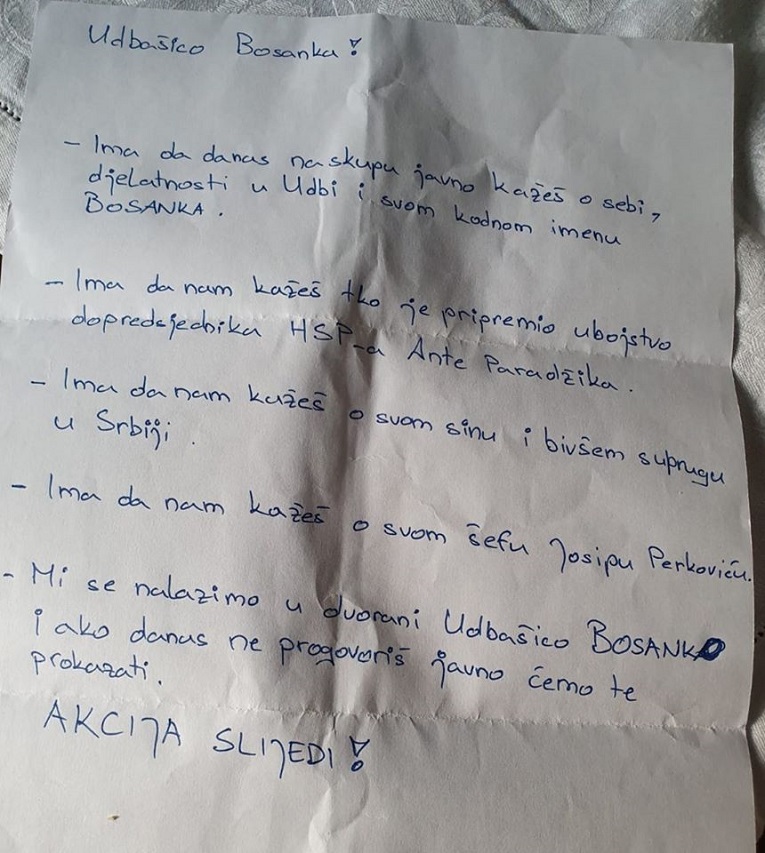 Udbašico Bosanka!
- Ima da danas na skupu javno kažeš o sebi,
djelatnosti u Udbi i svom kodnom imenu
BOSANKA.
- Ima da nam kažeš tko je pripremio ubojstvo
dopredsjednika HSP-a Ante Paradžika.
- Ima da nam kažeš o svom sinu i bivšem suprugu
u Srbiji.
- Ima da nam kažeš o svom šefu Josipu Perkoviću.
- Mi se nalazimo u dvorani Udbašico BOSANKO
i ako danas ne progovoriš javno ćemo te
prokazati.
AKCIJA SLIJEDI!